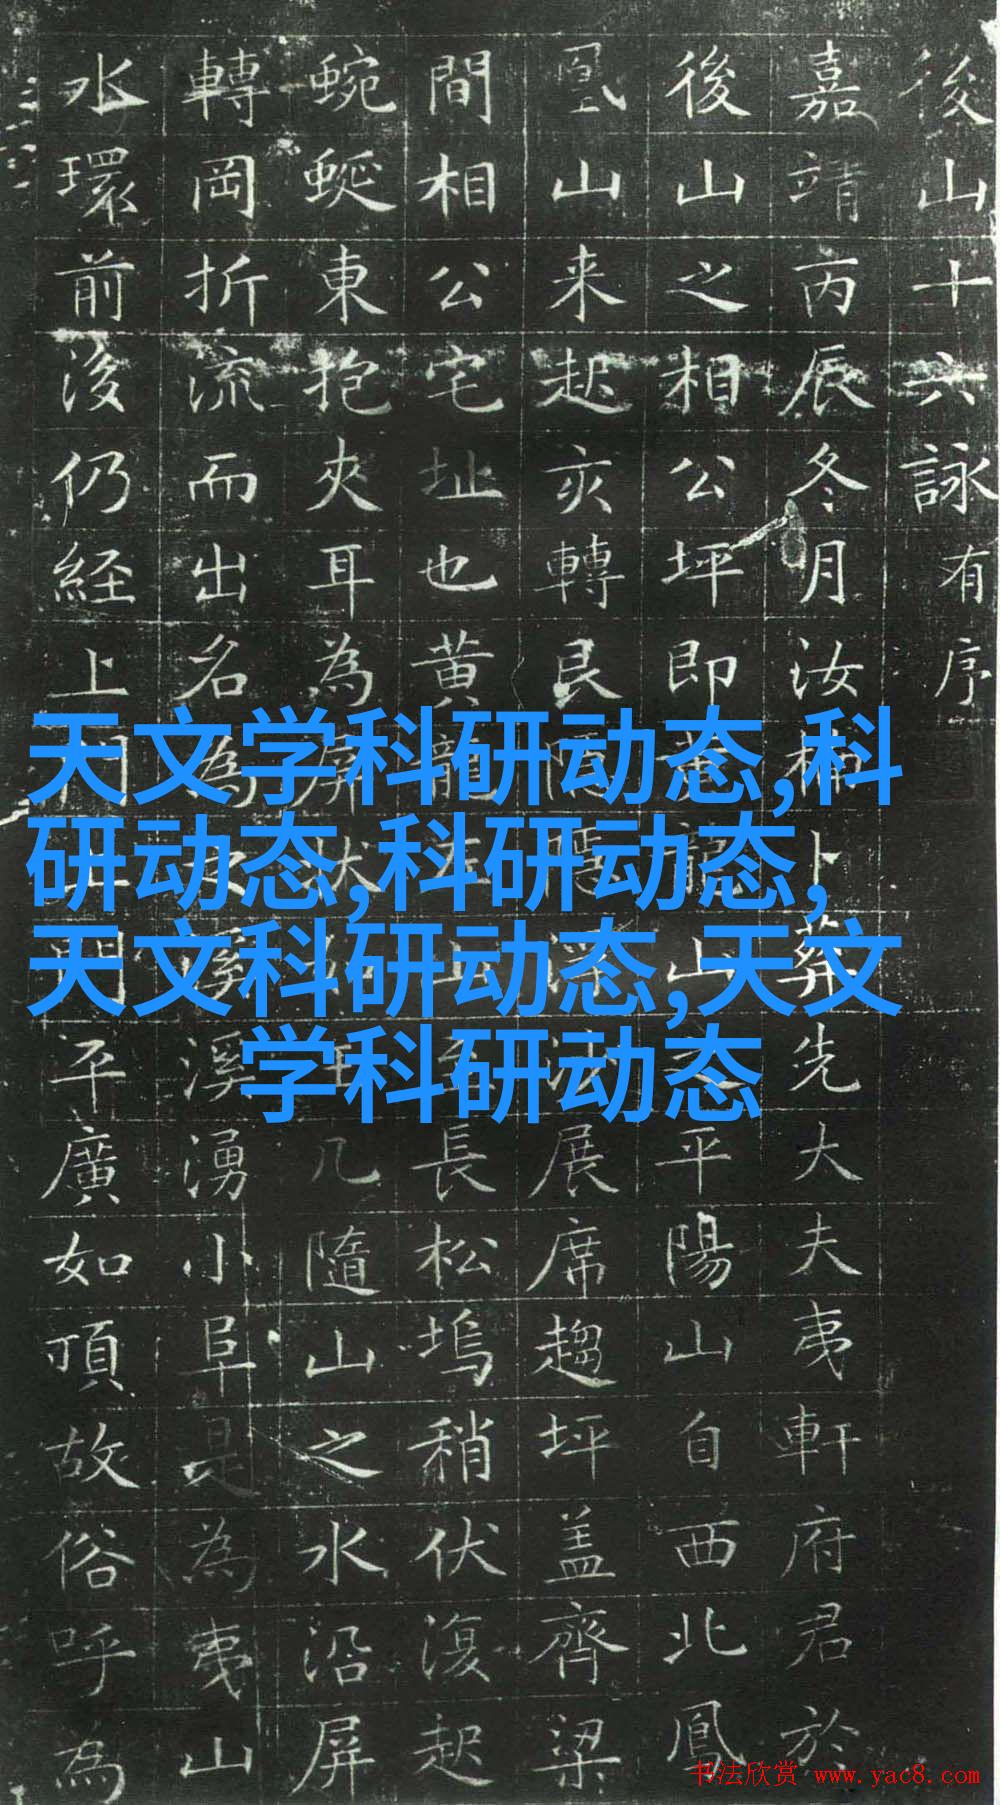 後山十六詠有序
嘉靖丙辰冬月汝楠卜葬先大夫夷軒府君於
後山之相公坪即山平陽山自西北鳳
凰山来起亥轉艮深展席趨坪盖齊梁
間相公宅址也黄龍山長松塢稍伏復起
蜿蜒東抱夾耳為屏几隨山之水沿屏
轉岡折流而出名為溪湧小阜是為夷山
水環前後仍経上平廣如頂故俗呼為
天文学科研动态,科
研动态,科研动态,
天文科研动态,天文
学科研动态
书法欣赏 www.yac8.com